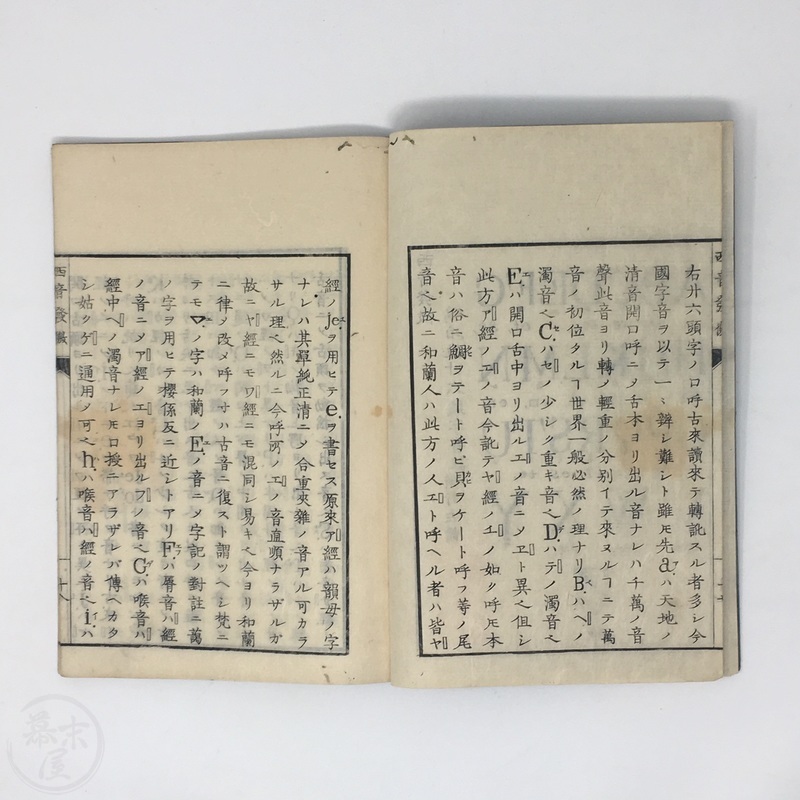 右廾六頭字ノ口呼古來讀來テ轉訛スル者多シ今
國字音ヲ以テ一〻辨シ難シト雖𪜈先a.ハ天地ノ
清音開口呼ニメ舌本ヨリ出ル音ナレハ千萬ノ音
聲此音ヨリ轉ノ輕重ノ分別イテ來ヌルヿニテ萬
音ノ初位タルヿ世界一般必然ノ理ナリB.ハベノ
濁音ベC.ハセノ少シク重キ音ベD.ハテノ濁音ベ
E.ハ開口舌中ヨリ出ルエノ音ニメヱト異ベ但シ
此方ア經ノエノ音今訛テヤ經ノエノ如ク呼𪜈本
音ハ俗ニ鯛ヲテート呼ビ貝ヲケート呼フ等ノ尾
音ベ故ニ和蘭人ハ此方ノ人エト呼ヘル者ハ皆ヤ
西音發微
經ノje.ヲ用ヒテe.ヲ書セス原來ア經ハ韻母ノ字
ナレハ其單純正清ニメ合重夾雜ノ音アル可カラ
サル理ベ然ルニ今呼所ノエノ音直順ナラザルガ
故ニヤ經ニモワ經ニモ混同シ易キベ今ヨリ和蘭
ニ律メ改メ呼フヿハ古音ニ復スト謂ツヘシ梵ニ
テモノ字ハ和蘭ノE.ノ音ニメ字記ノ對註ニ藹
ノ字ヲ用ヒテ櫻係反ニ近シトアリF.ハ唇音ハ經
ノ音ニメア經ノエヨリ出ルフノ音ベG.ハ喉音ハ
經中ヘノ濁音ナレ𪜈口授ニアラザレバ傳ヘカタ
シ姑ククケニ通用メ可ベh.ハ喉音ハ經ノ音ベi.ハ
西音發微
十八
幕末屋